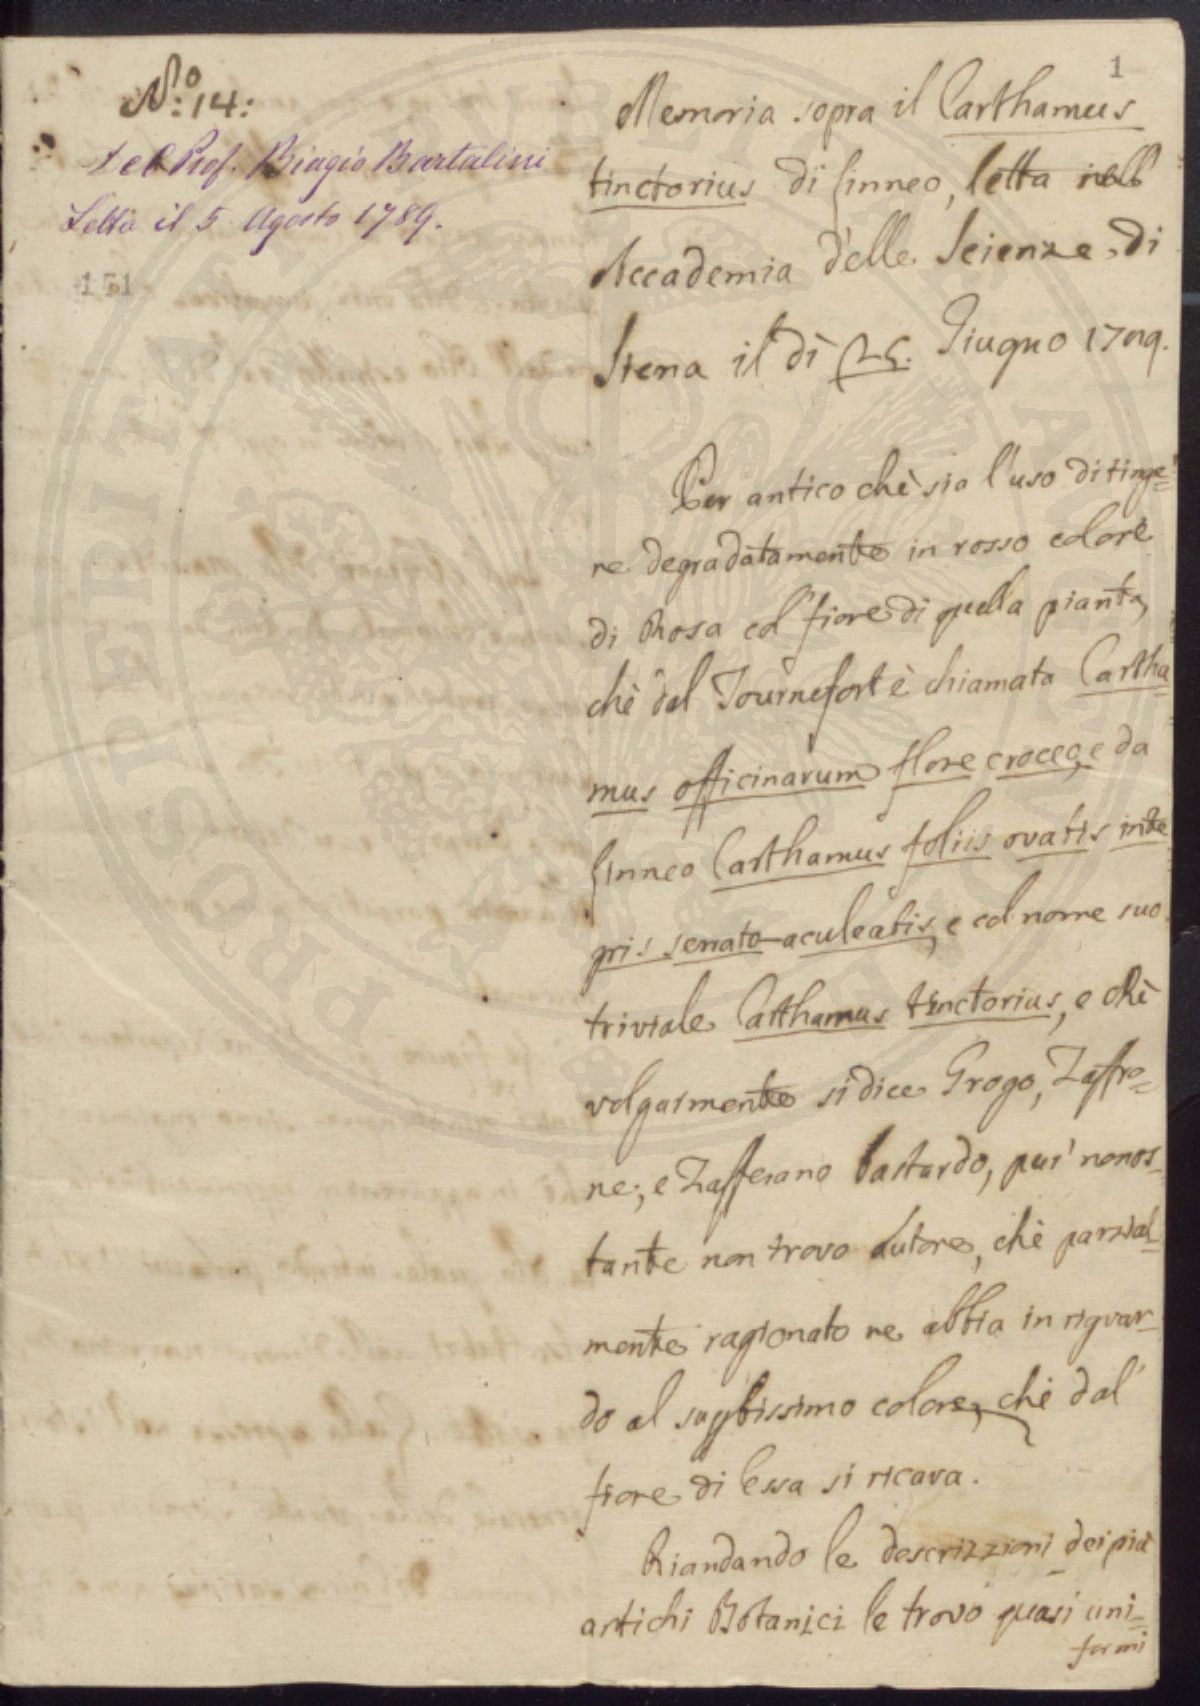 1
N.o 14:
del Prof. Biagio Bartalini
Letta il 5 Agosto 1789.
151
Memoria sopra il Carthamus
tinctorius di Linneo, letta nell'
Accademia delle Scienze di
Siena il dì Giugno 1789.
Per antico chè sia l'uso di tinge=
re degradatamente in rosso colore
di Rosa col fiore di quella pianta,
chè dal Tournefort è chiamata Cartha
mus officinarum flore croceo, e da
Linneo Carthamus foliis ovatis inte
gris serrato-aculeatis, e col nome suo
triviale Carthamus tinctorius, e chè
volgarmente si dice Grogo, Zaffro=
ne, e Zafferano bastardo, pur' nonos=
tante non trovo Autore, chè parzial=
mente ragionato ne abbia in riguar=
do al colore, chè dal'
fiore di Essa si ricava.
Riandando le descrizzioni dei più
antichi Botanici le trovo quasi uni=
formi
PROSPERITATI PUBLICAE AUGENDAE